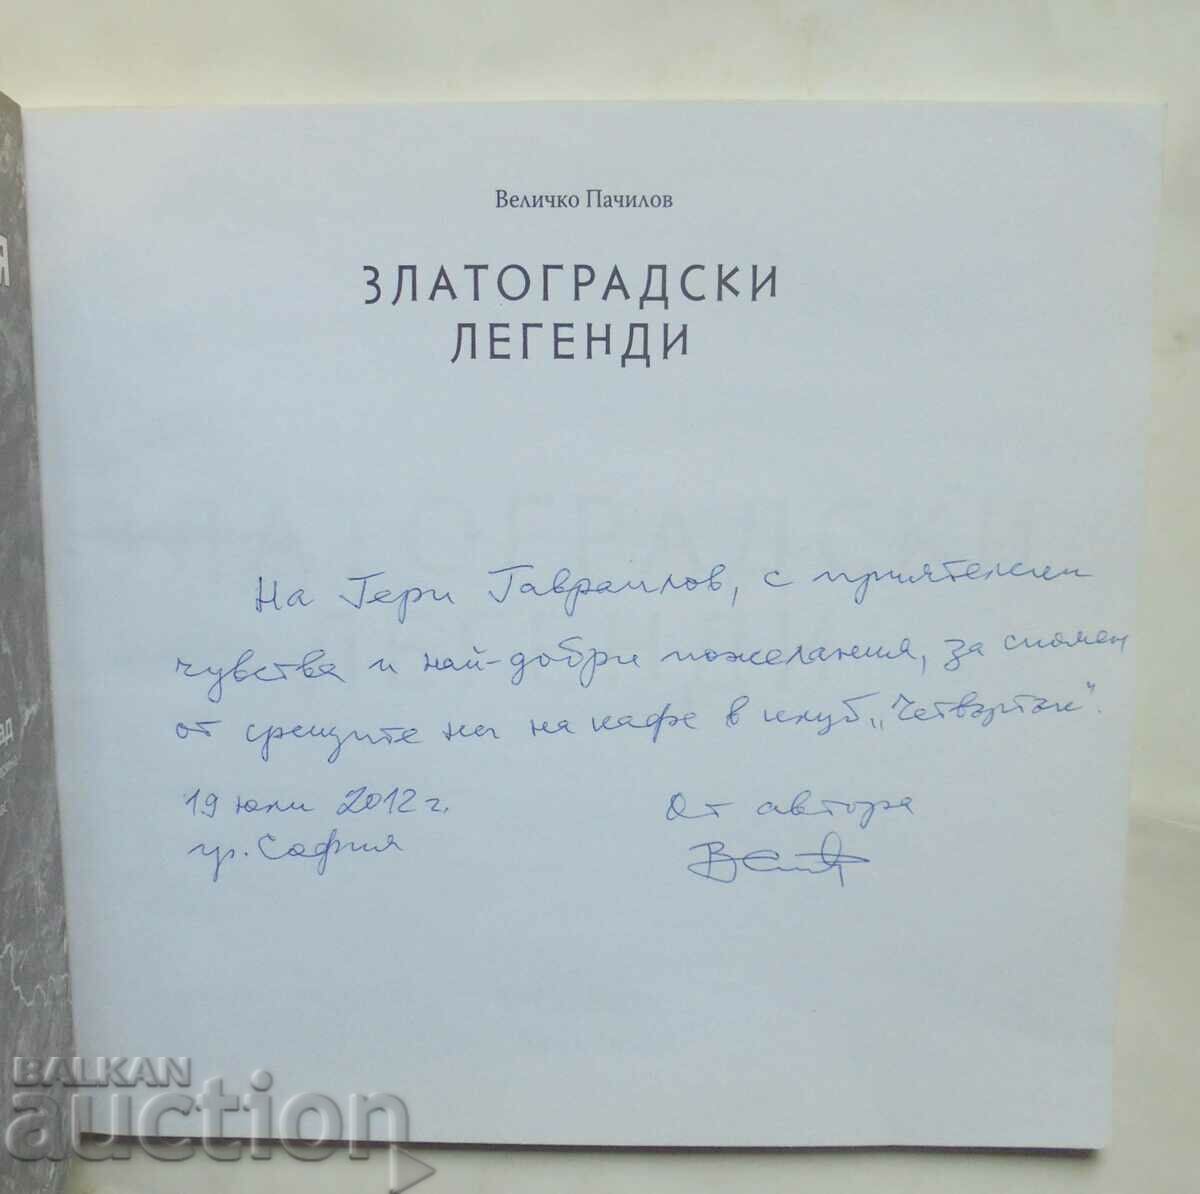 Величко Пачилов
ЗЛАТОГРАДСКИ
ЛЕГЕНДИ
На Гери Гавраилов, с приятелски
чувства и най-добри пожелания, за спомен
от срещите ни на кафе в клуб „Четвъртък".
19 юли 2012 г.
гр. София
От автора
BALKAN
auction